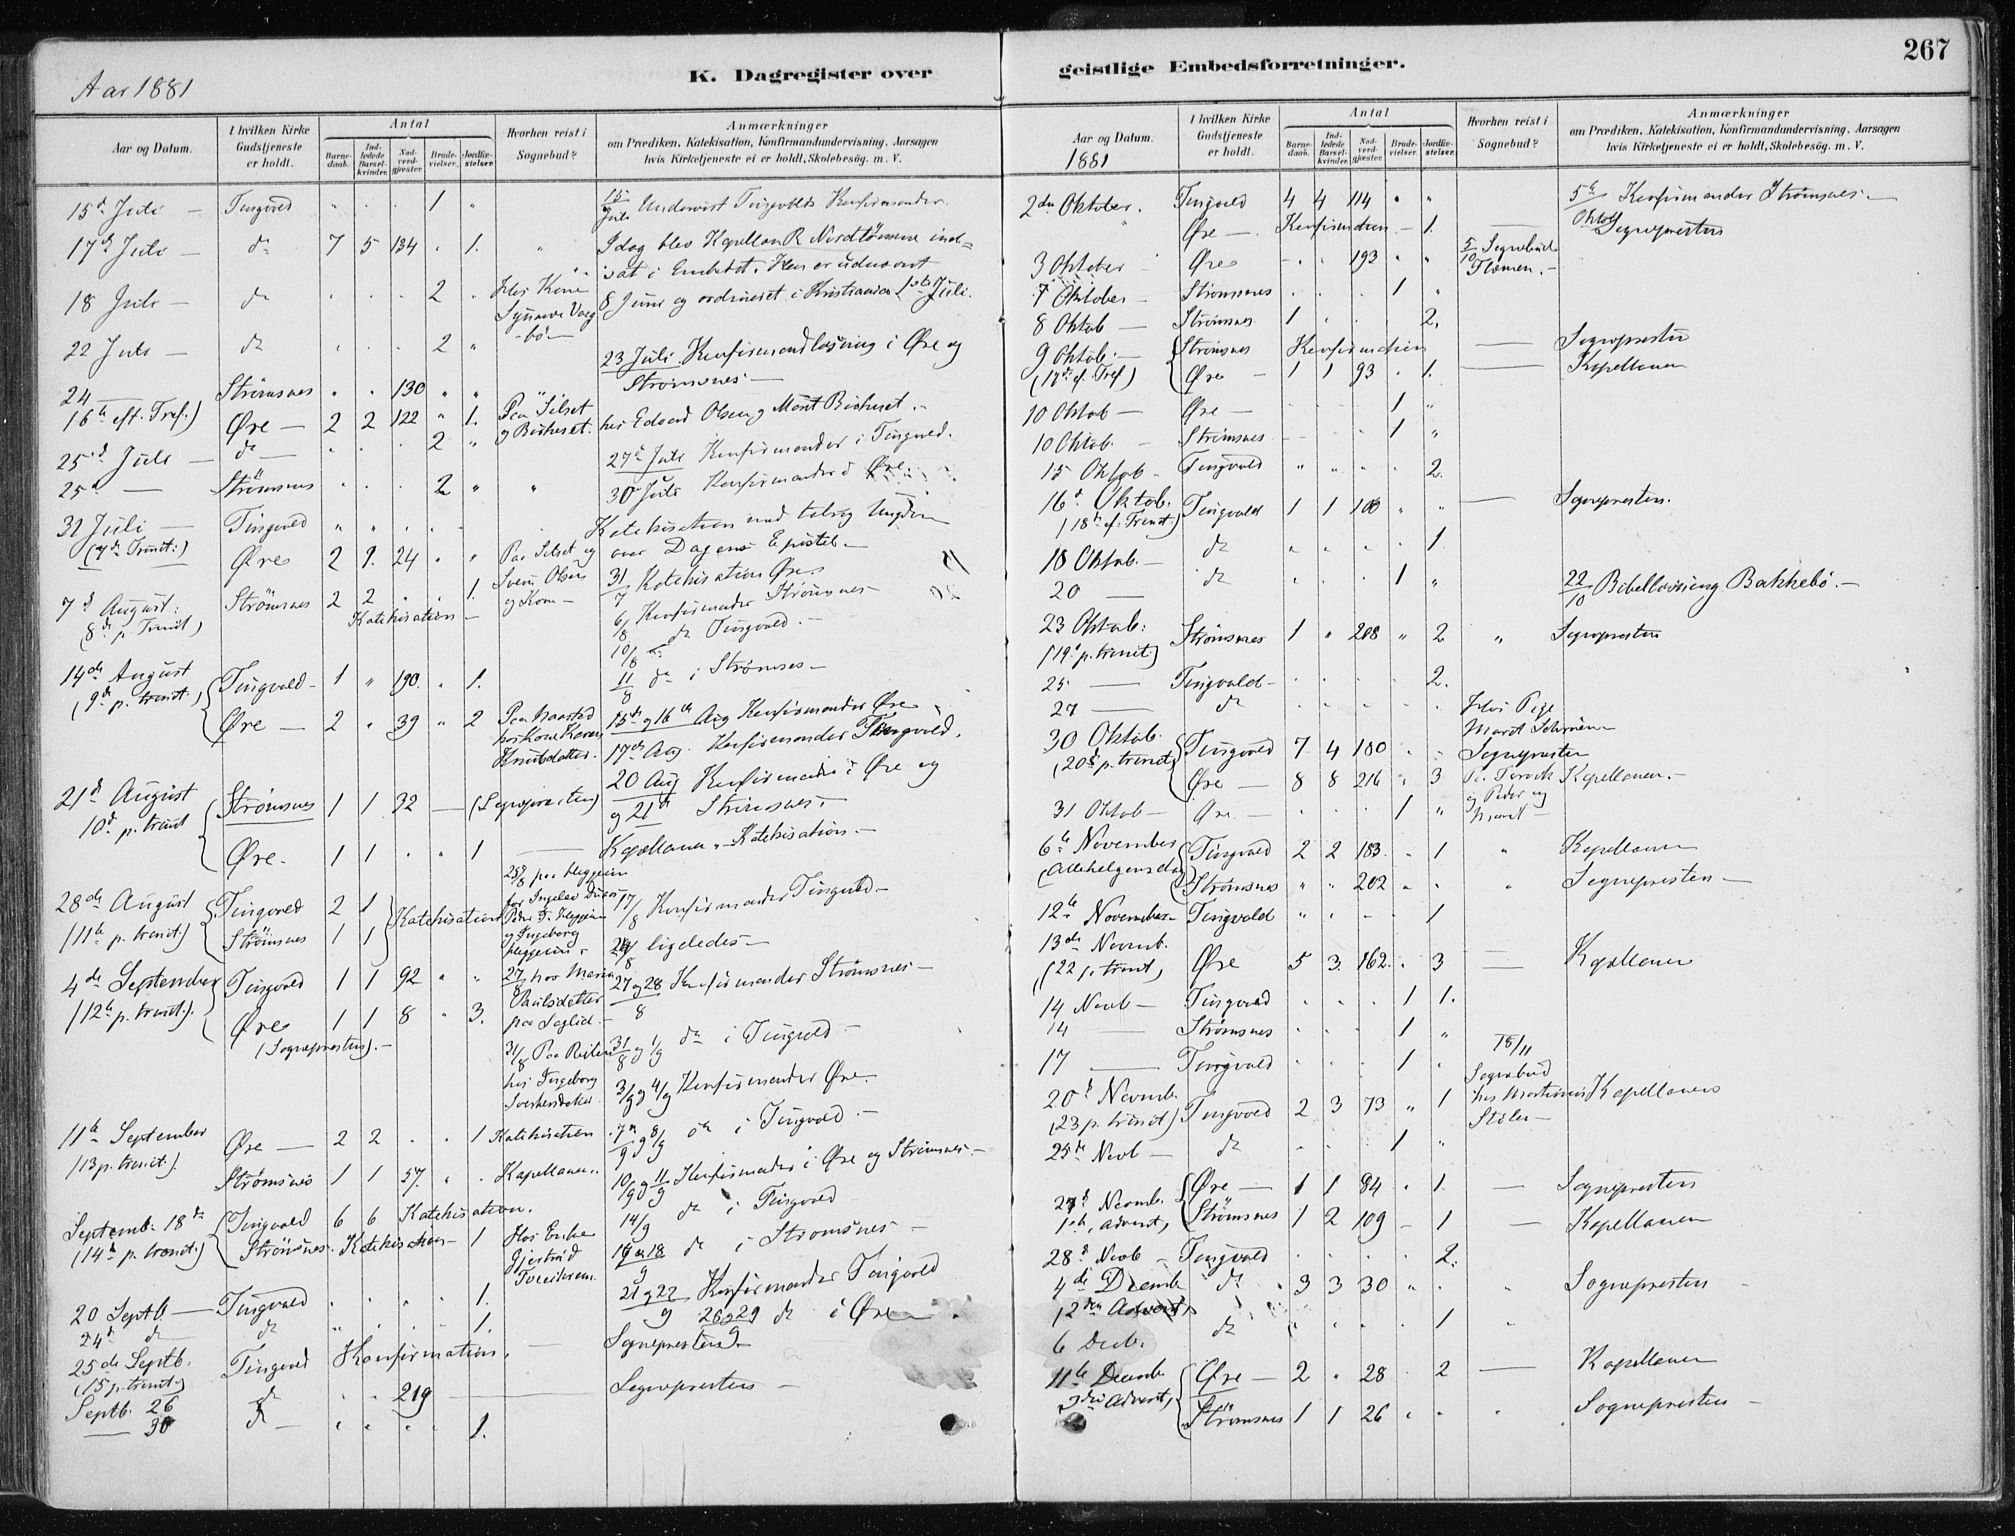 267
K. Dagregister over geistlige Embedsforretninger.
Aar 1881
Aar og Datum.
I hvilken Kirke Gudstjeneste er holdt.
Antal
Barnedaab.
Indledede Barselkvinder.
Nadverdgjæster
Brudevielser.
Jordfæstelser.
Hvorhen reist i Sognebud?
Anmærkninger
om Prædiken, Katekisation, Konfirmandundervisning, Aarsagen
hvis Kirketjeneste ei er holdt, Skolebesøg. m. V.
15d Juli — Tingvold " " " 1 " 15 Juli Undervist Tingvolds Konfirmander.
17de Juli — do 7 5 134 " 1. " Idag blev Kapellan R Nordtømme ind=
sat i Embedet. Han er udnævnt
18 Juli — do " " " 2 " Hos Kone 8 Juni og ordineret i Kristiania 1ste Juli.
22 Juli — do " " " 2 "
23 Juli Konfirmandlæsning i Øre og
Strømsnes —
24 — Strømsnes " " 130 " "
eft. Tref.) Øre — 2 2 122 " 1. Paa Silset hos Edvard Olsen og
25d Juli — do — " " " 2 " 27de Juli Konfirmander i Tingvold.
25d — Strømsnes " " " 2 " " 30 Juli Konfirmander i Øre
31 Juli — Tingvold " " " " Katekisation med talrig Ungdom
(7de Trinit:) Øre 2 2. 24 " " Paa Silset og over Dagens Epistel —
31/7 Katekisation Øre
7d August: Strømsnes 2 2 " " 1. og Kone —
(8de p. Trinit) Katekisation —
6/8 Konfirmander Strømsnes —
10/8 do Tingvold. —
11/8 do i Strømsnes —
14de August
(9de p. trinit.) Tingvold — 1 " 190. " 1.
Øre — 2 " 39 " 2 15de og 16de Aug Konfirmander Øre
Knutsdatter. 17de Aug. Konfirmander Tingvold.
20 Aug Konfirmander i Øre og
21d August
10d p. trinit Strømsnes 1 1 92 — (Sognepresten) og 21d Strømsnes.
Øre. 1 1 " " 1 — Kapellanen. Katekisation. —
28de August
(11te p. trinit.) Tingvold 2 1 Katekisation 17/8 Konfirmander Tingvold —
Strømsnes 1 1 ligeledes —
4de September
(12te p. trinit.) Tingvold 1 1 92 " " 27/8 hos Maria Paulsdatter 27 og 28/8 Konfirmander Strømsnes —
Øre 1 1 8 " 3.
(Sognepresten). —
31/8 og 1/9 do i Tingvold —
hos Ingeborg 3/9 og 4/9 Konfirmander Øre.
11te September Øre — 2 2 " " 1 Katekisation 7/9 og 8/9 do i Tingvold —
(13 p. trinit.) Strømsnes 1 1 57. " " Kapellanen. 10/9 og 11/9 Konfirmander i Øre og Strømsnes. —
Septemb. 18de Tingvold 6 6 Katekisation. 14/9 do i Tingvold
(14d p. trinit.) Strømsnes. Katekisation — 1 Hos Enke do i Strømsnes —
21 og 22/9 Konfirmander Tingvold
20 Septb. — Tingvold " " " " 1. 26 og 29/9 do i Øre
24d do do " " " " 1.
25de Septb. Tingvold Konfirmation. — Sognepresten —
(15 p. trinit)
Septb. 26 do " " 219 — Sognepresten —
— 30 do — " " " " 1.
Aar og Datum.
1881
I hvilken Kirke Gudstjeneste er holdt.
Antal
Barnedaab.
Indledede Barselkvinder.
Nadverdgjæster
Brudevielser.
Jordfæstelser.
Hvorhen reist i Sognebud?
Anmærkninger
om Prædiken, Katekisation, Konfirmandundervisning, Aarsagen
hvis Kirketjeneste ei er holdt, Skolebesøg. m. V.
2den Oktober. Tingvold 4 4 114 " " 5te Oktob Konfirmander Strømsnes —
" Øre — Konfirmation — 1. Sognepresten
3 Oktober Øre " " 193 " " 5/10 Sognebud
7 Oktober — Strømsnes " " " 1 "
8 Oktob — Strømsnes 1 " " " 2.
9 Oktob. — Strømsnes Konfirmation — Sognepresten
(17de e. Tref) Øre — 1 1 93 " 1. — Kapellanen
10 Oktob — Øre — " " " 1 "
10 Oktob. — Strømsnes " " " 1 "
15 Oktob — Tingvold " " " " 2.
16d Oktob. Tingvold 1 1 100 " " — Sognepresten.
(18de e. Trinit.)
18 Oktob. — do " " " " 1.
20 — do " " " 1 " 22/10 Bibellæsning Bakkebø. —
23 Oktob: Strømsnes 1 " 208 " 2 " Sognepresten
(19d p. trinit.)
25 — Tingvold — " " " " 2.
27 — do " " " " " Hos Pige
30 Oktob.
(20d p. trinit) Tingvold 7 4 100 " " Sognepresten
Øre — 8 8 216 " 3 Kapellanen. —
31 Oktob — Øre — " " " 1 "
6te November
(Allehelgensdag) Tingvold 2 2 183. " 1 " Kapellanen
Strømsnes " " 202 " " " Sognepresten —
12te November — Tingvold " " " " 1
13de Novemb.
(22 p. trinit) Øre 5 3. 162. " 3 — Kapellanen
14 Novb — Tingvold " " " 1 1.
14 — Strømsnes " " " 1 "
17 — Tingvold " " " 1 " 18/11 Sognebud
20d Novemb.
(23 p. trinit) Tingvold 2 3 73 " 1 Kapellanen
25de Novb — do " " " 1 "
27d Novemb.
1ste Advent, Øre — 1 1 84 " 1. — Sognepresten
Strømsnes 1 2 109 — 1 — Kapellanen
28d Novb — Tingvold " " " " 2.
4de Decemb do " 3 3 30 " " " Sognepresten
(2den Advent)
6 Decb. do " " " " 1 "
11te Decemb
3die Advent, Øre — 2 " 28 " 2 — Kapellanen
Strømsnes 1 1 26 " " " Sognepresten —